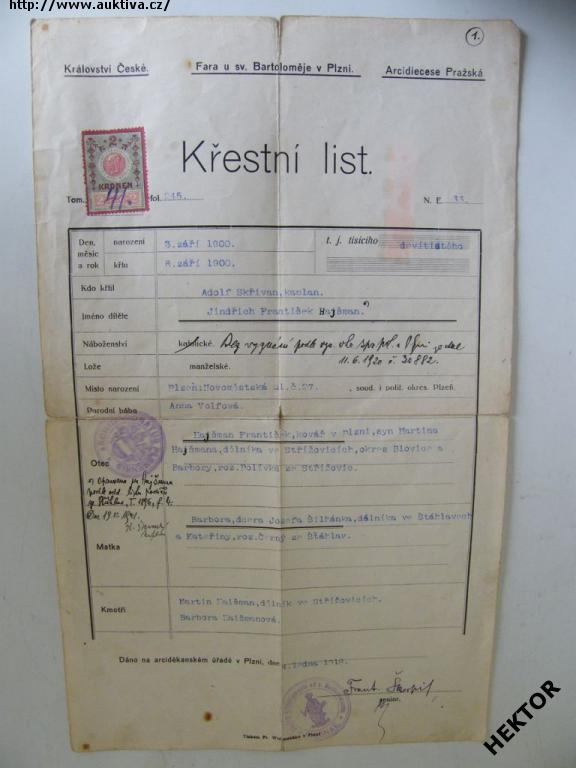 http://www.auktiva.cz/
1.
Království České.
Fara u sv. Bartoloměje v Plzni.
Arcidiecese Pražská
Křestní list.
2
KRONEN
Tom.
fol. 215.
N. E 33.
Den, měsíc a rok
narození
3.září 1900.
t. j. tisícího
devítistého
křtu
8.září 1900.
Kdo křtil
Adolf Skřivan,kaplan.
Jméno dítěte
Jindřich František Hajšman
Náboženství
katolické. Bez vyznání podle
11.6.1920 č. 30882.
Lože
manželské.
Místo narození
Plzeň:Novoměstská ul.č.27. , soud. i polit. okres. Plzeň.
Porodní bába
Anna Volfová.
Otec
Hajšman František,kovář v Plzni,syn Martina
Hajšmana,dělníka ve Střížovicích,okres Blovice a
Barbory,roz.Polívka ze Střížovic.
Matka
Barbora,dcera Josefa Šilhánka,dělníka ve Štáhlavech
a Kateřiny,roz.Černý ze Štáhlav.
Kmotři
Martin Hajšman,dělník ve Střížovicích.
Barbora Hajšmanová.
Dáno na arciděkanském úřadě v Plzni, dne ledna 1919.
Frant. Škorpil
HEKTOR